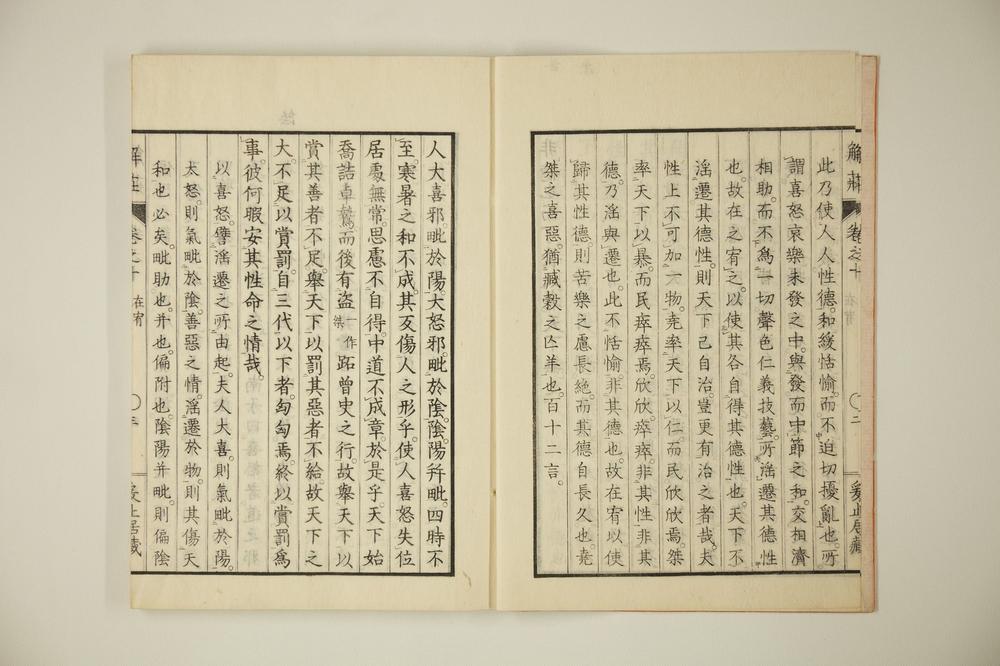 解莊 卷之十 在宥 〇二 爰止居藏
此乃使人人性德和緩恬愉而不迫切擾亂也所
謂喜怒哀樂未發之中與發而中節之和交相濟
相助而不爲一切聲色仁義技藝所淫遷其德性
也故在之宥之以使其各自得其德性也天下不
淫遷其德性則天下已自治豈更有治之者哉夫
性上不可加一物尭率天下以仁而民欣欣焉桀
率天下以暴而民瘁瘁焉欣欣瘁瘁非其性非其
德乃淫與遷也此不恬愉非其德也故在宥以使
歸其性德則苦樂之慮長絶而其德自長久也尭
桀之喜惡猶臧穀之亾羊也百十二言
人大喜邪毗於陽大怒邪毗於陰陰陽并毗四時不
至寒暑之和不成其反傷人之形乎使人喜怒失位
居處無常思慮不自得中道不成章於是乎天下始
喬詰卓鷙而後有盗一作桀跖曾史之行故舉天下以
賞其善者不足舉天下以罰其惡者不給故天下之
大不足以賞罰自三代以下者匈匈焉終以賞罰爲
事彼何暇安其性命之情哉
以喜怒譬淫遷之所由起夫人大喜則氣毗於陽
太怒則氣毗於陰善惡之情淫遷於物則其傷天
和也必矣毗助也并也偏附也陰陽并毗則偏陰
解莊 卷之十 在宥 〇三 爰止居藏